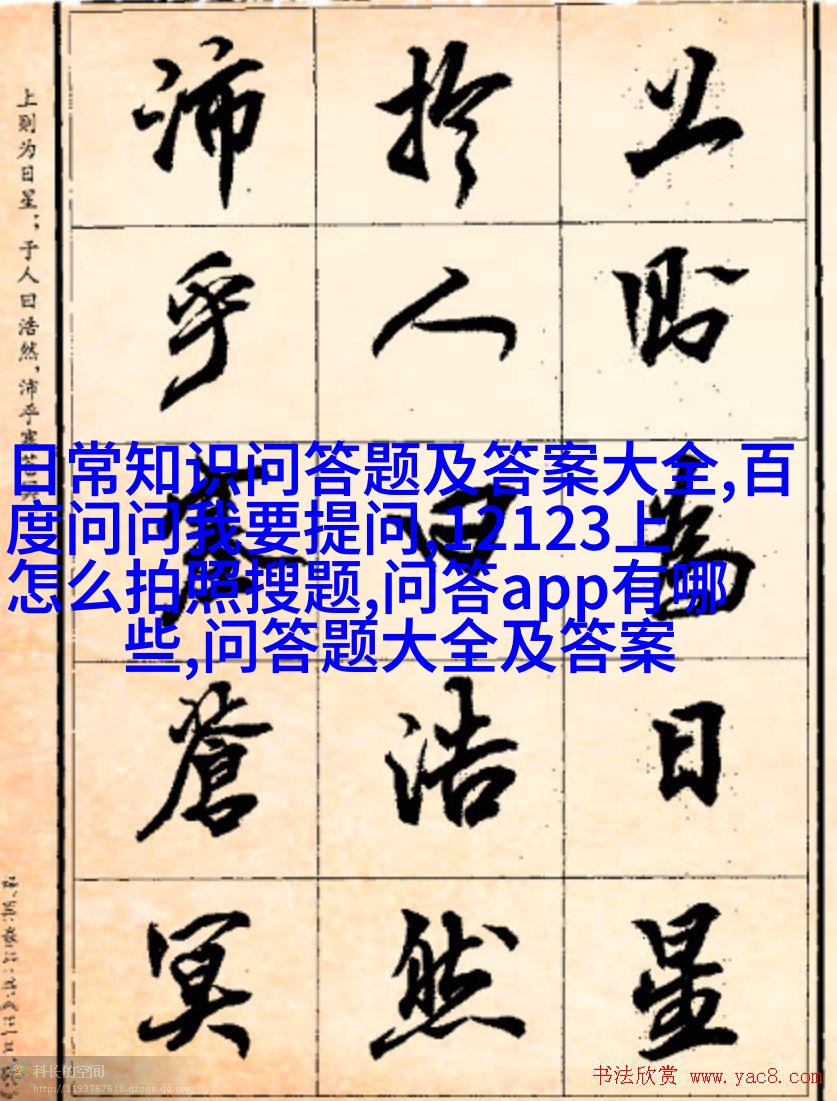 上则为日星；于人曰浩然，沛乎塞苍冥
上則為日星
於人曰浩然
沛乎塞蒼冥
日常知识问答题及答案大全,百
度问问我要提问,12123上
怎么拍照搜题,问答app有哪
些,问答题大全及答案
科长的空间
http://1193767618.qzone.qq.com
书法欣赏 www.yac8.com